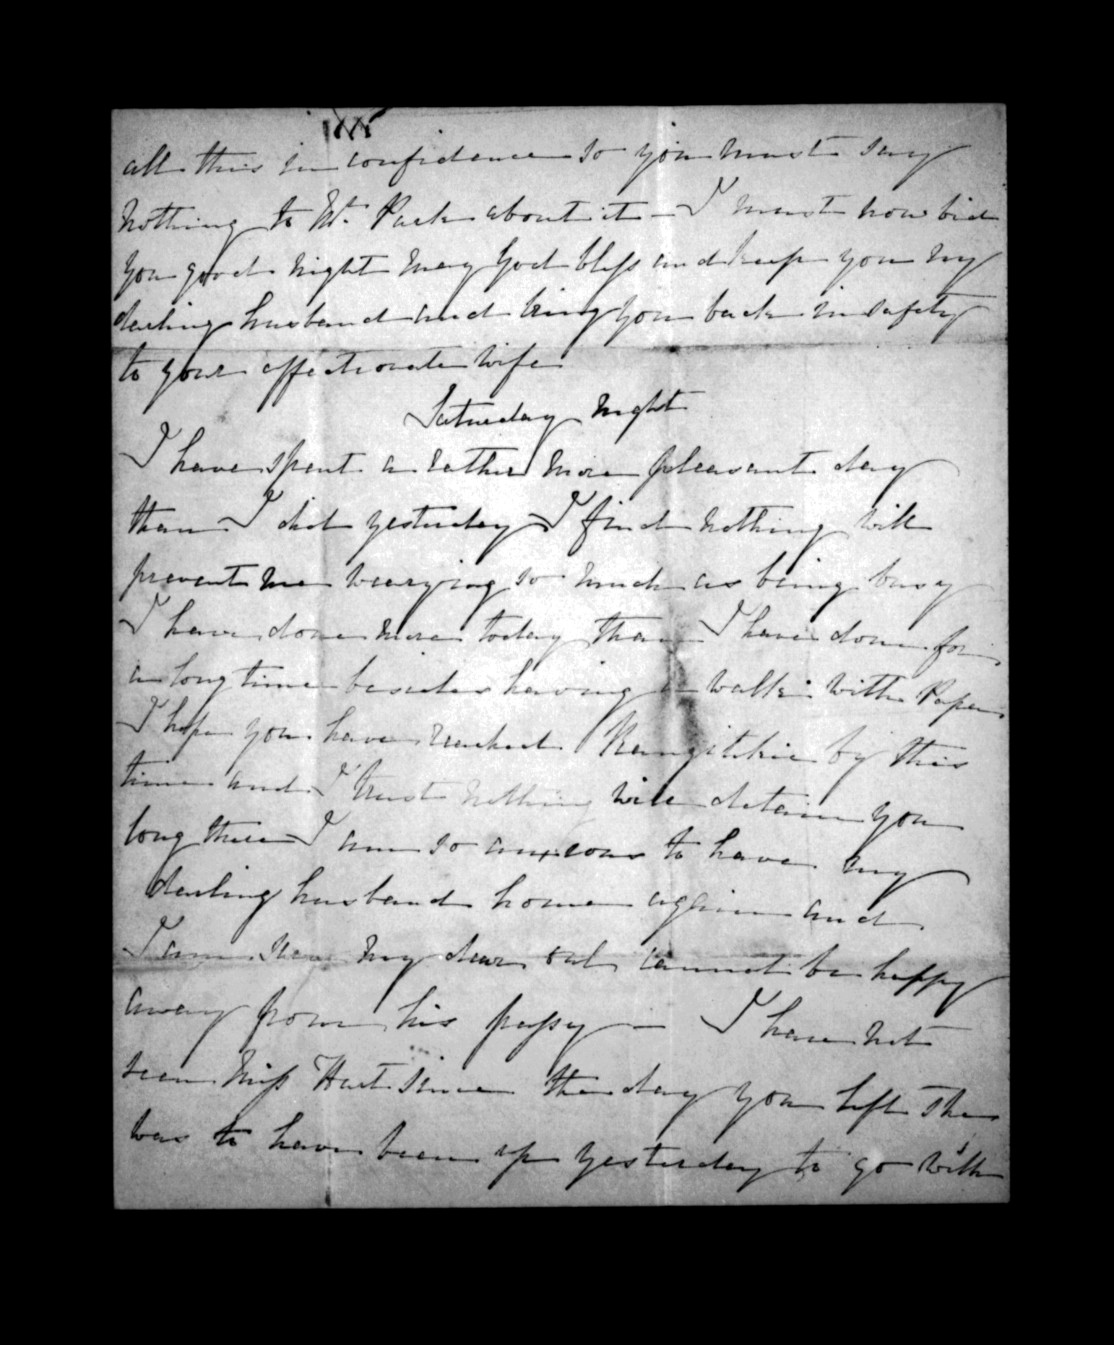 all this in confidence so you must say
nothing to Mr. Park about it – I must now bid
you good night may God bless and keep you my
darling husband and bring you back in safety
to your affectionate wife
Saturday Night
I have spent a rather more pleasant day
than I did yesterday I find nothing will
prevent me wearying so much as being busy
I have done more today than I have done for
a long time besides having a walk with Papa
I hope you have reached Rangitikie by this
time and I trust nothing will detain you
long there I am so anxious to have my
darling husband home again and
I am sure my dear cannot be happy
away from his pussy – I have not
seen Miss Hart since the day you left She
was to have been up yesterday to go with